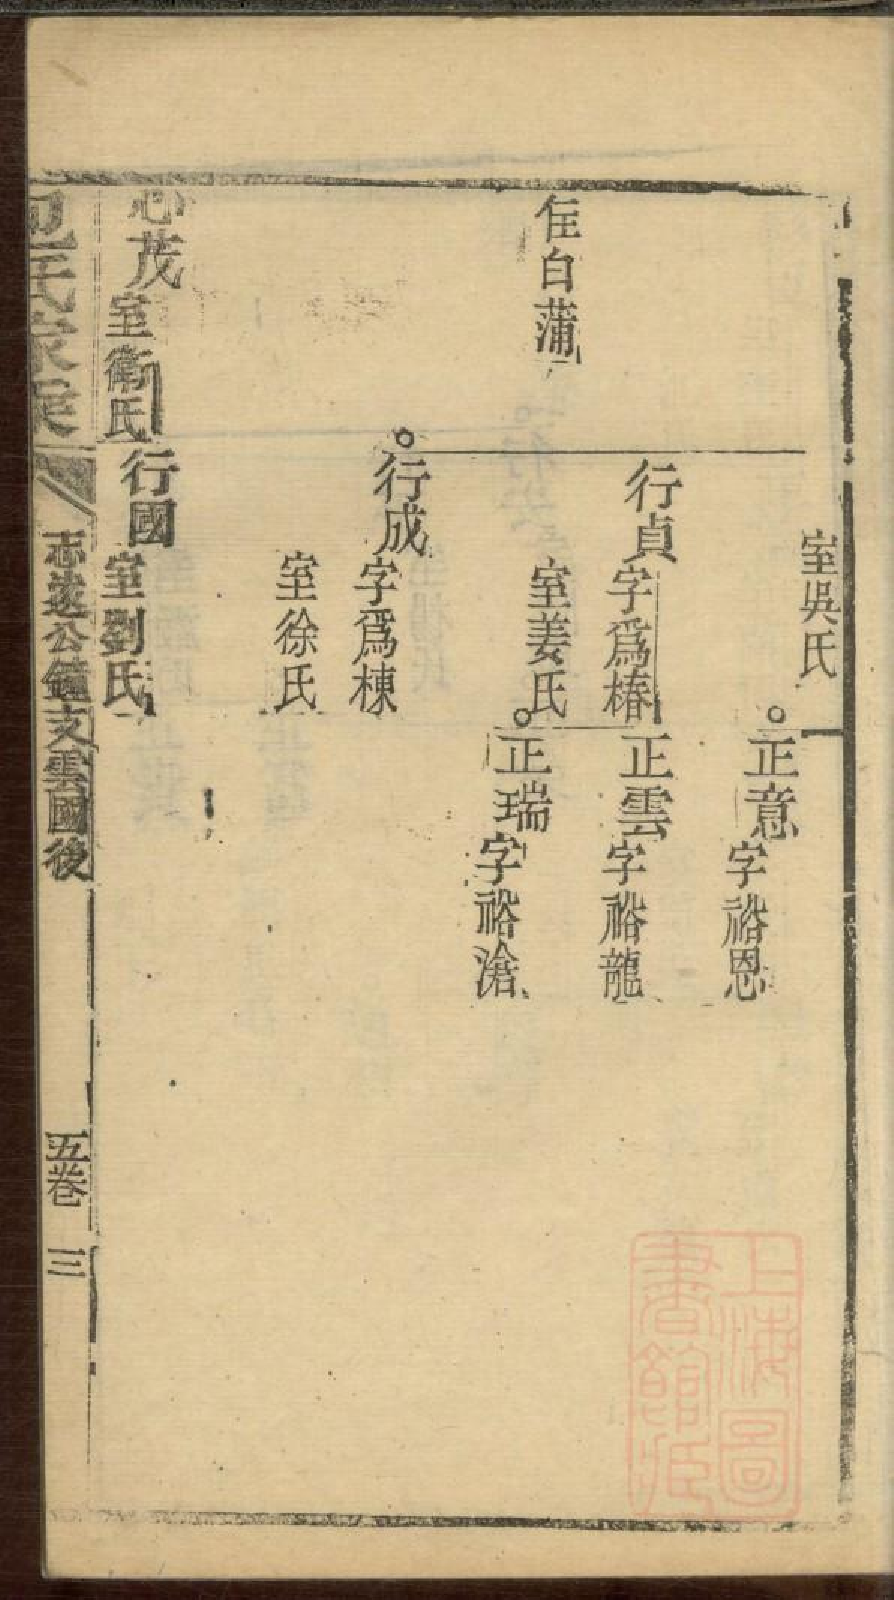 室吳氏
正意字裕恩
行貞字爲椿
正雲字裕龍
住白蒲
室姜氏
正瑞字裕滄
行成字爲棟
室徐氏
志茂室衛氏
行國室劉氏
包氏家乘
志遂公鐘支雲國後
五卷 三
上海圖
書館藏